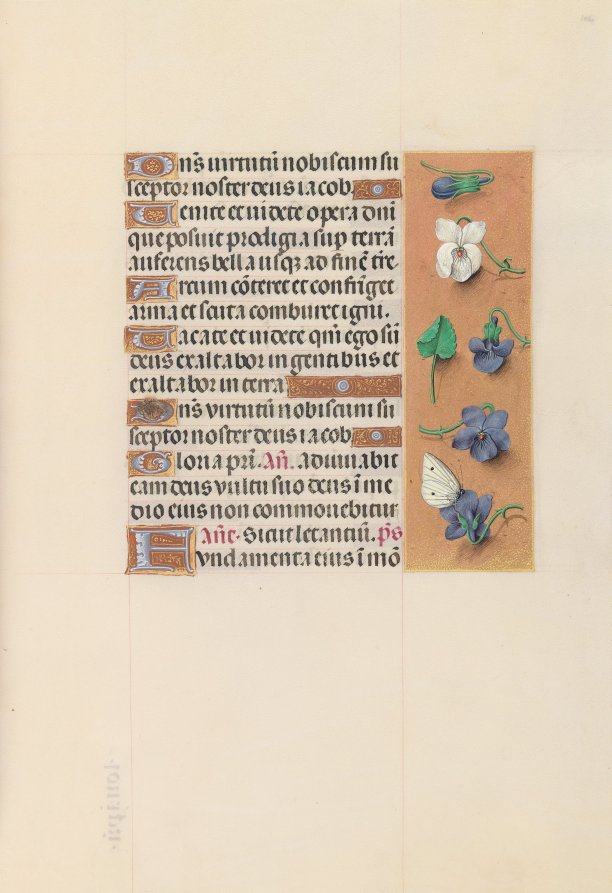 Dn̄s uirtutū nobiscum su
sceptor noster deus iacob
Uenite et uidete opera dn̄i
que posuit prodigia sup terrā
auferens bella usqꝫ ad finē tr̄e.
Arcum cōteret et confriget
arma et scuta comburet igni.
Uacate et uidete qm̄ ego sū
deus exaltabor in gentibus et
exaltabor in terra
Dn̄s virtutū nobiscum su
sceptor noster deus iacob
Gloria pr̄i. An̄. adiuuabit
eam deus vultu suo deus ī me
dio eius non commouebitur
An̄e. Sicut letantiū. p̄s
Fundamenta eius ī mō